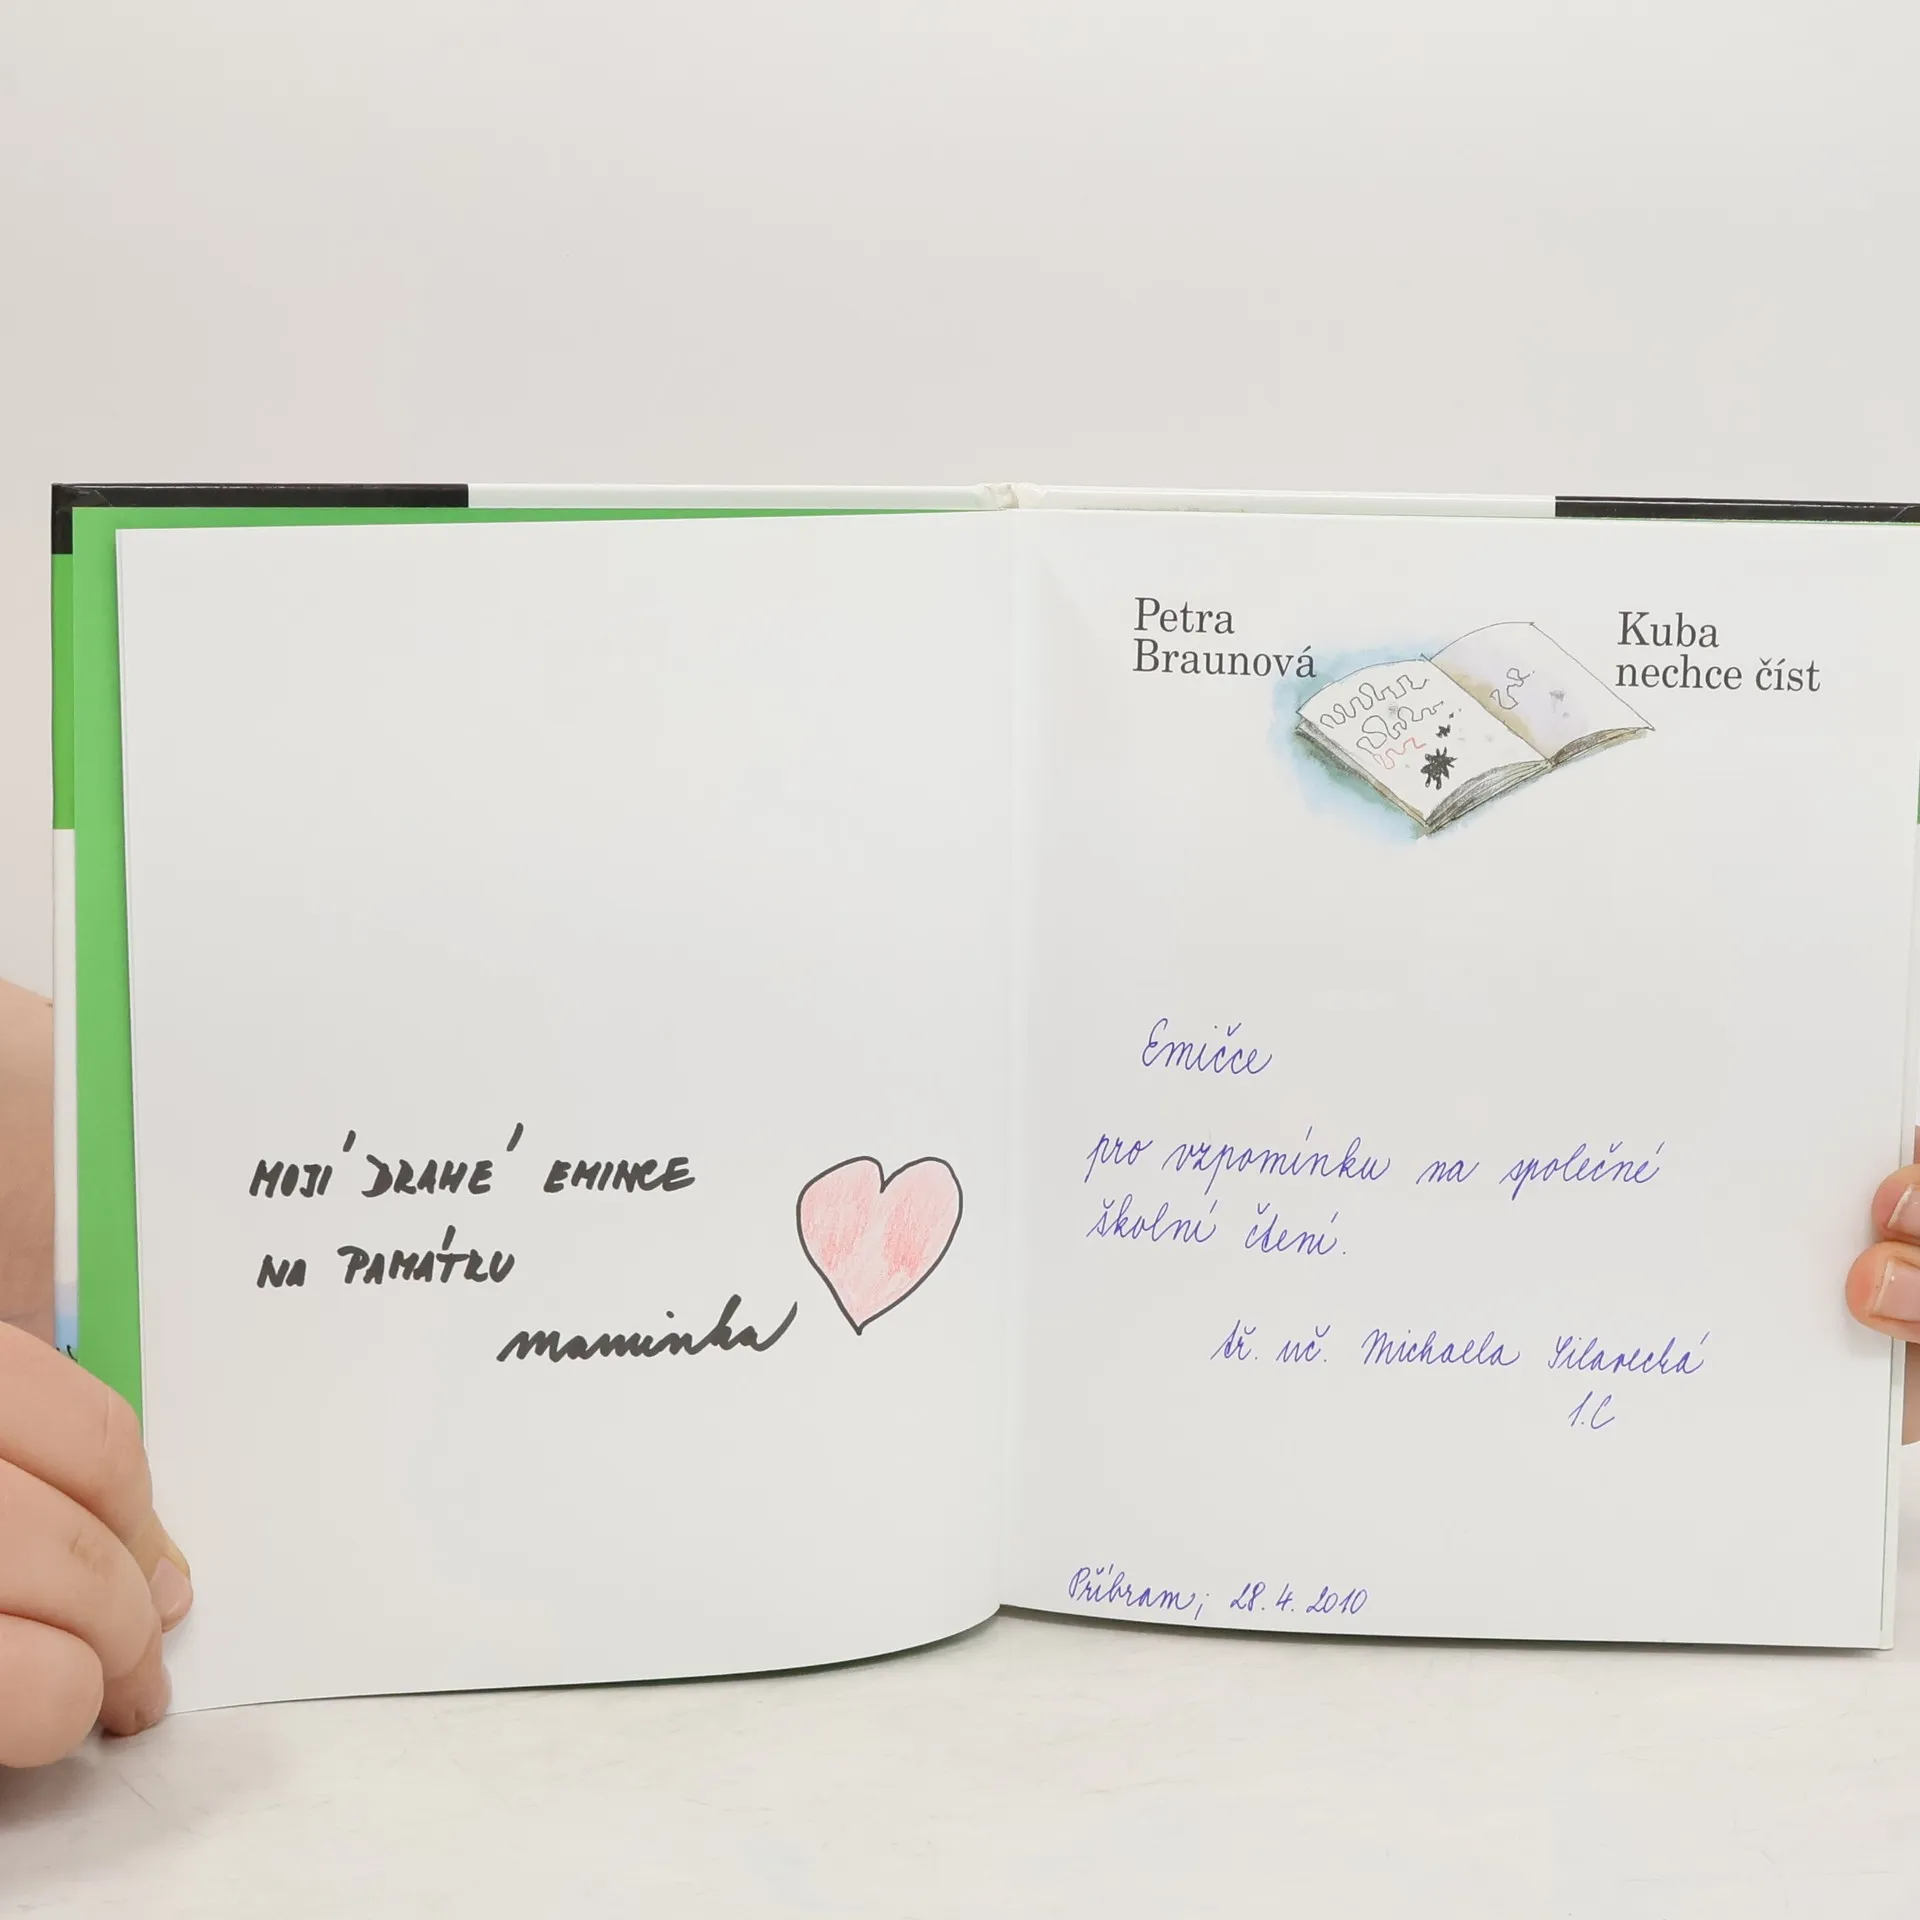 MOJÍ DRAHÉ EMINCE
NA PAMÁTKU
maminka
Petra
Braunová
Kuba
nechce číst
Emičce
pro vzpomínku na společné
školní čtení.
tř. uč. Michaela
1.C
Příbram, 28. 4. 2010